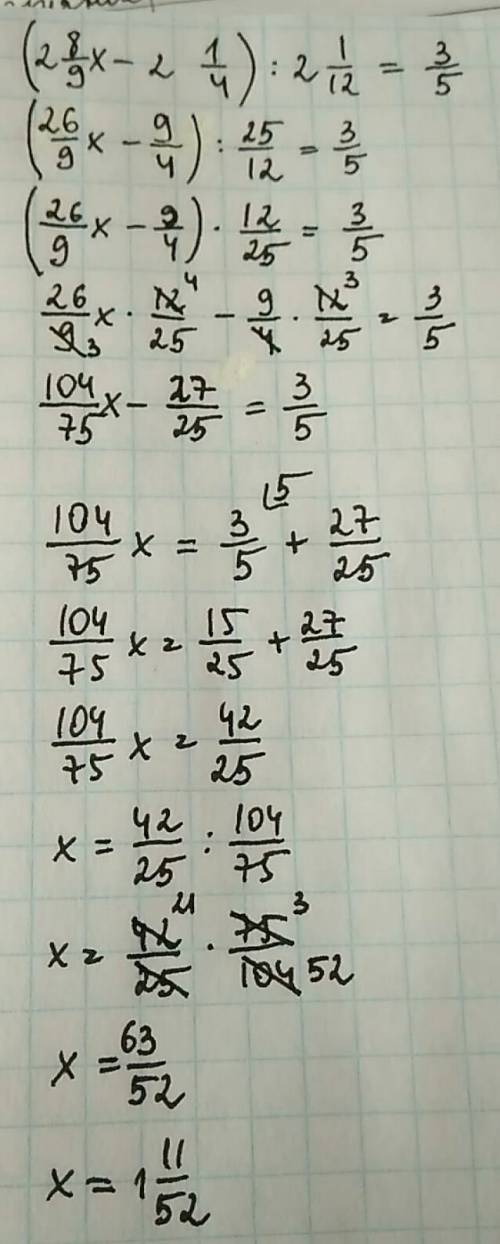 (2 8/9 x - 2 1/4) : 2 1/12 = 3/5
(26/9 x - 9/4) : 25/12 = 3/5
(26/9 x - 9/4) · 12/25 = 3/5
26/9 3 x · 12 4/25 - 9/4 · 12 3/25 = 3/5
104/75 x - 27/25 = 3/5
104/75 x = 3/5 ⌊5 + 27/25
104/75 x = 15/25 + 27/25
104/75 x = 42/25
x = 42/25 : 104/75
x = 42 21/25 · 75 3/104 52
x = 63/52
x = 1 11/52